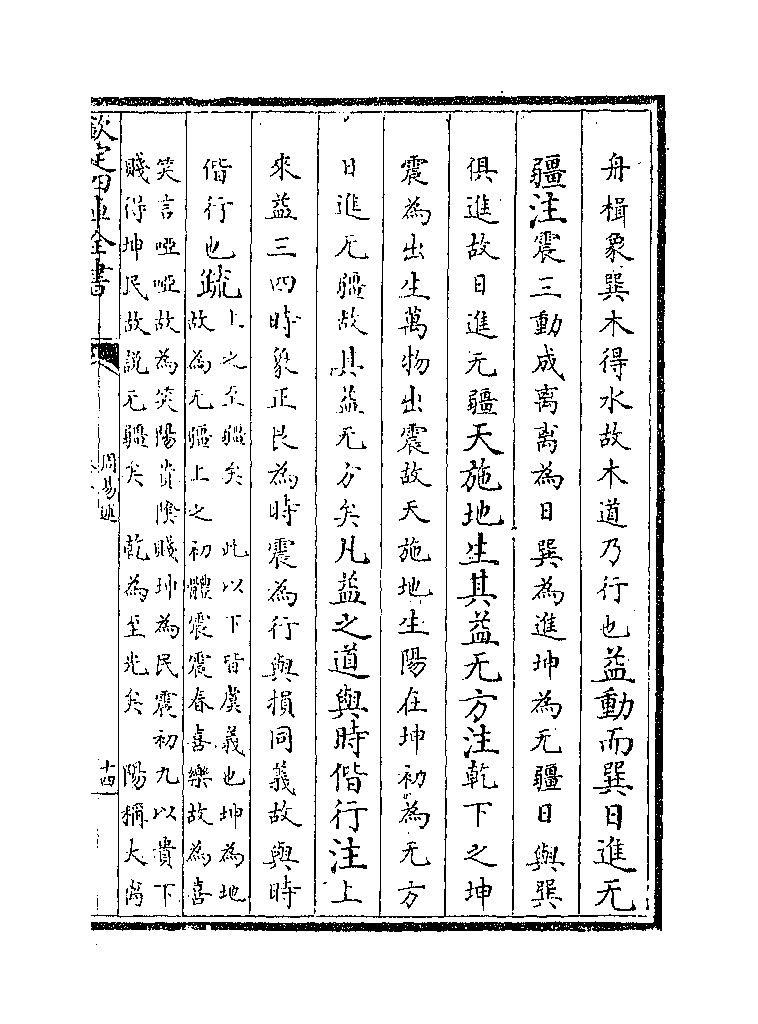 舟楫象巽木得水故木道乃行也益動而巽日進无
疆注震三動成离离為日巽為進坤為无疆日與巽
俱進故日進无疆天施地生其益无方注乾下之坤
震為出生萬物出震故天施地生陽在坤初為无方
日進无疆故其益无方矣凡益之道與時偕行注上
來益三四時象正艮為時震為行與損同義故與時
偕行也疏
上之至疆矣 此以下皆虞義也坤為地
故為无疆上之初體震震春喜樂故為喜
笑言啞啞故為笑陽貴陰賤坤為民震初九以貴下
賤得坤民故說无疆矣 乾為至光矣 陽稱大离
欽定四庫全書
周易述
十四